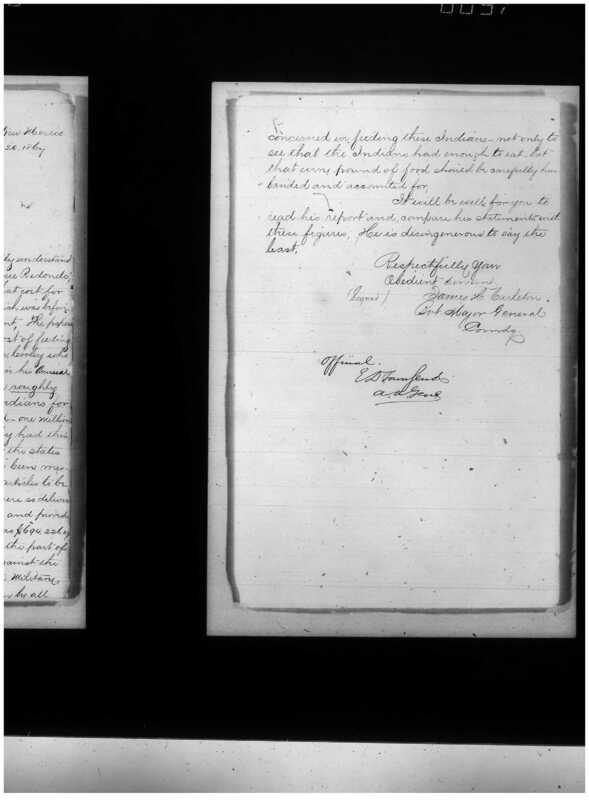 New Mexico
20, 1867
understand
Redondo,
cost for
which was
The papers
cost of feeding
who
in his Annual
roughly
Indians for
one million
had this
the states
been
articles to be
were so deliver
and provid
the part of
against the
Military
be all
concerned in feeding these Indians - not only to
see that the Indians had enough to eat but
that every pound of food should be carefully hus
banded and accounted for
It will be well for you to
read his report and compare his statements with
these figures, He is disingenerous to say the
least.
Respectfully Your
Obedient Servant
(Signed) James H. Carleton.
Bvt Major General
Comdg
Official.
E D Townsend
A. A. Genl